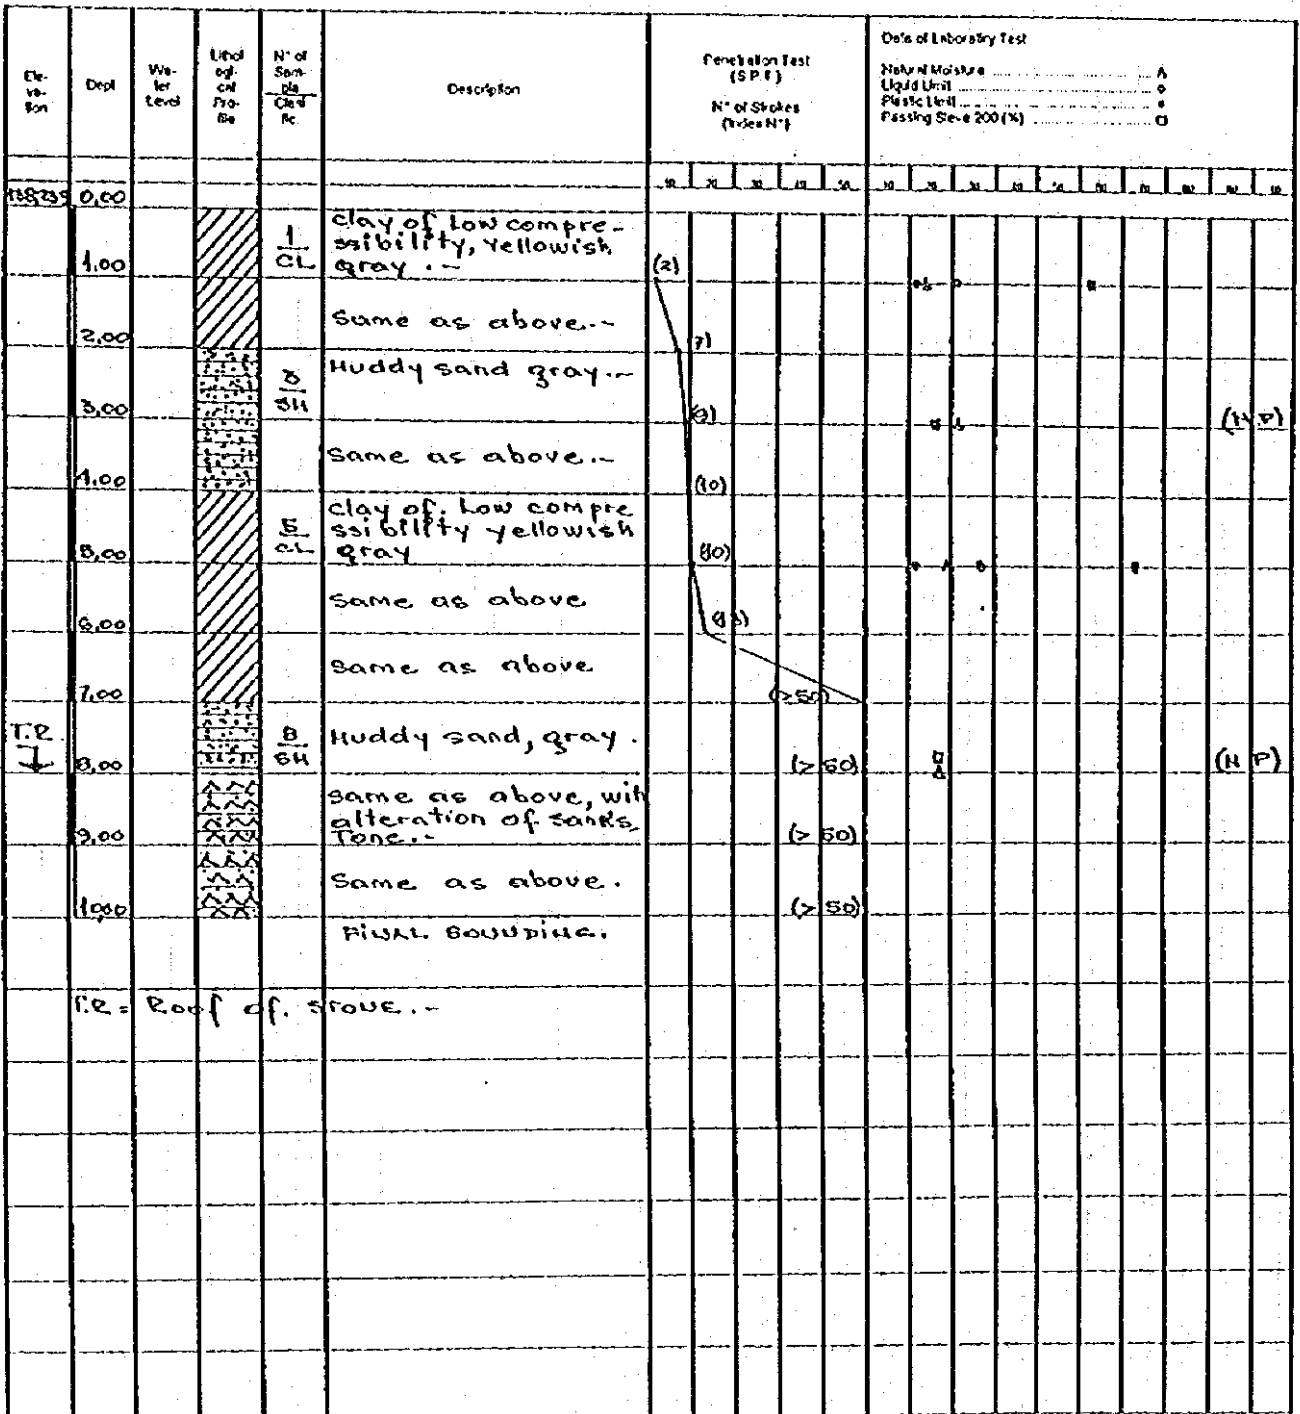 Ele-
va-
tion
Dept
Wa-
ter
Level
Lithol
ogi-
cal
Pro-
file
N° of
Sam-
ple
Clasi
fic.
Description
Penetration Test
(S.P.T)
N° of Strokes
(Index N°)
Data of Laboratiry Test
Natural Moisture
Liquid Limit
Plastic Limit
Passing Sieve 200 (%)
10 20 30 40 50 10 20 30 40 50 60 70 80
0,00
1
CL
clay of Low compre-
ssibility, yellowish
gray .-
1.00 (2)
Same as above.-
2,00 (7)
3
SM
Muddy sand gray.-
3,00 (9) (N P)
Same as above.-
4.00 (10)
5
CL
clay of. Low compre
ssibility yellowish
gray
5,00 (10)
Same as above
6,00 (13)
Same as above
7,00 (>50)
T.R.
8
SM
Muddy sand, gray.
8,00 (>50) (N P)
Same as above, with
alteration of Sands
Tone.-
9,00 (>50)
Same as above.
10,00 (>50)
FINAL SOUNDING.
T.R = Roof of. STONE.-